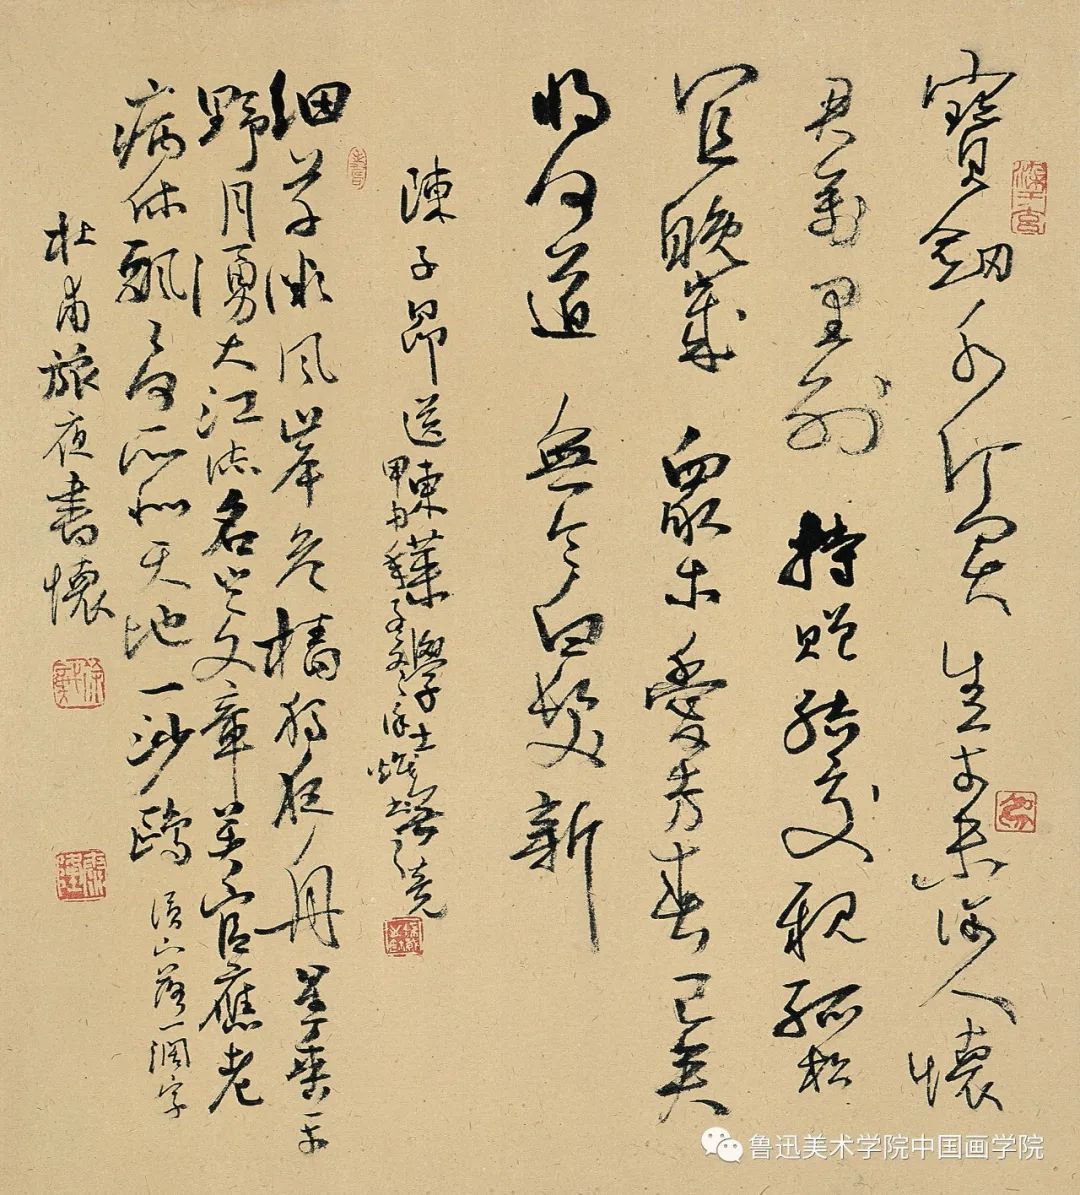 寶劒千金買生平未許人懷
君萬里別持贈結交親孤松
宜晚歲衆木愛芳春已矣
將何道無令白髮新
陳子昂送東萊學士無競
甲申秋
細草微風岸危檣獨夜舟星垂平
野月湧大江流名豈文章著官應老
病休飄飄何所似天地一沙鷗
落一闊字
杜甫旅夜書懷
鲁迅美术学院中国画学院